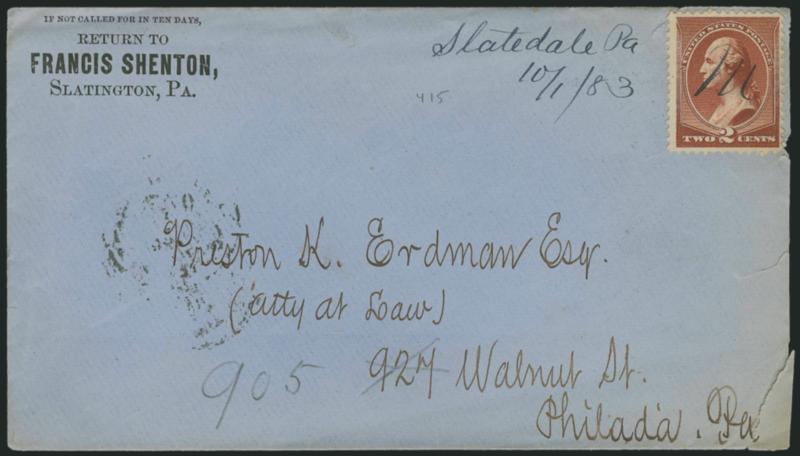 IF NOT CALLED FOR IN TEN DAYS,
RETURN TO
FRANCIS SHENTON,
SLATINGTON, PA.
Slatedale Pa
10/1/83
415
UNITED STATES POSTAGE
TWO 2 CENTS
Preston K. Erdman Esq.
(Atty at Law)
905 927 Walnut St.
Philada. Pa